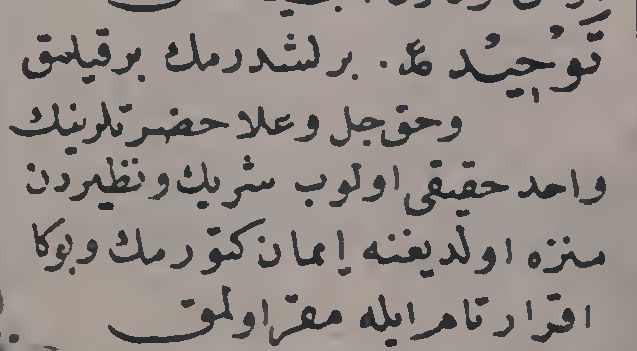 تَوْحِيْد ع. برلشدرمك برقيلمق
وحق جل وعلا حضرتلرينك
واحد حقيقى اولوب شريك ونظيردن
منزه اولديغنه إيمان كتورمك وبوكا
اقرار تام ايله مقر اولمق